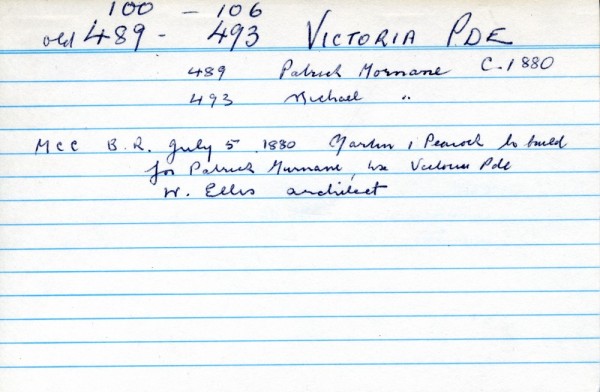 100 - 106
old 489 - 493 VICTORIA PDE
489 Patrick Mornane C.1880
493 Michael "
MCC B.R. July 5, 1880 Martin & Peacock to build
for Patrick Murnane, hse Victoria Pde
W. Ellis architect